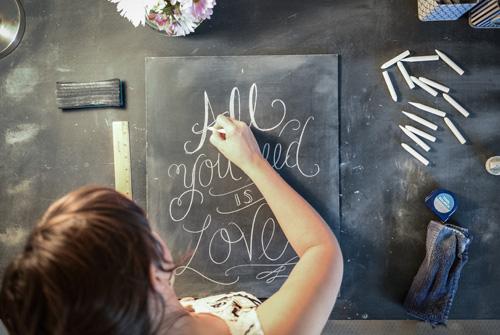 All
you need
is
Love